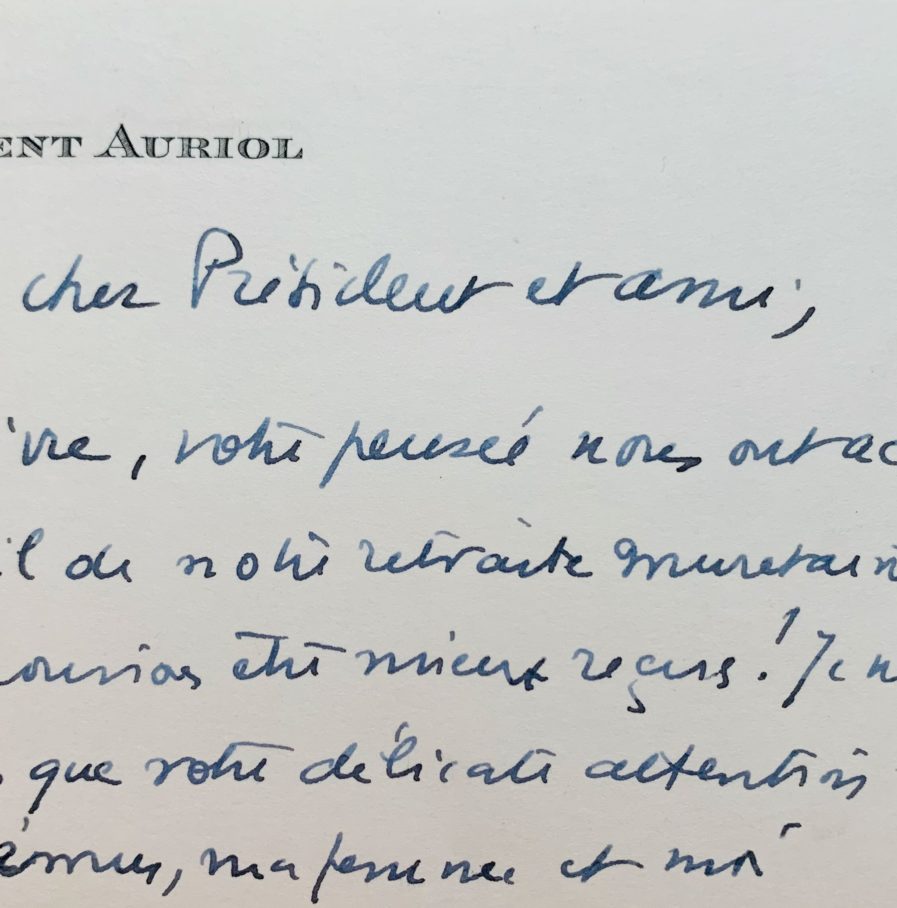 ENT AURIOL
cher Président et ami,
vre, votre pensée nous ont ac
il de notre retraite muretain
ourrions être mieux reçus! Je n
que votre délicate attention
émus, ma femme et moi